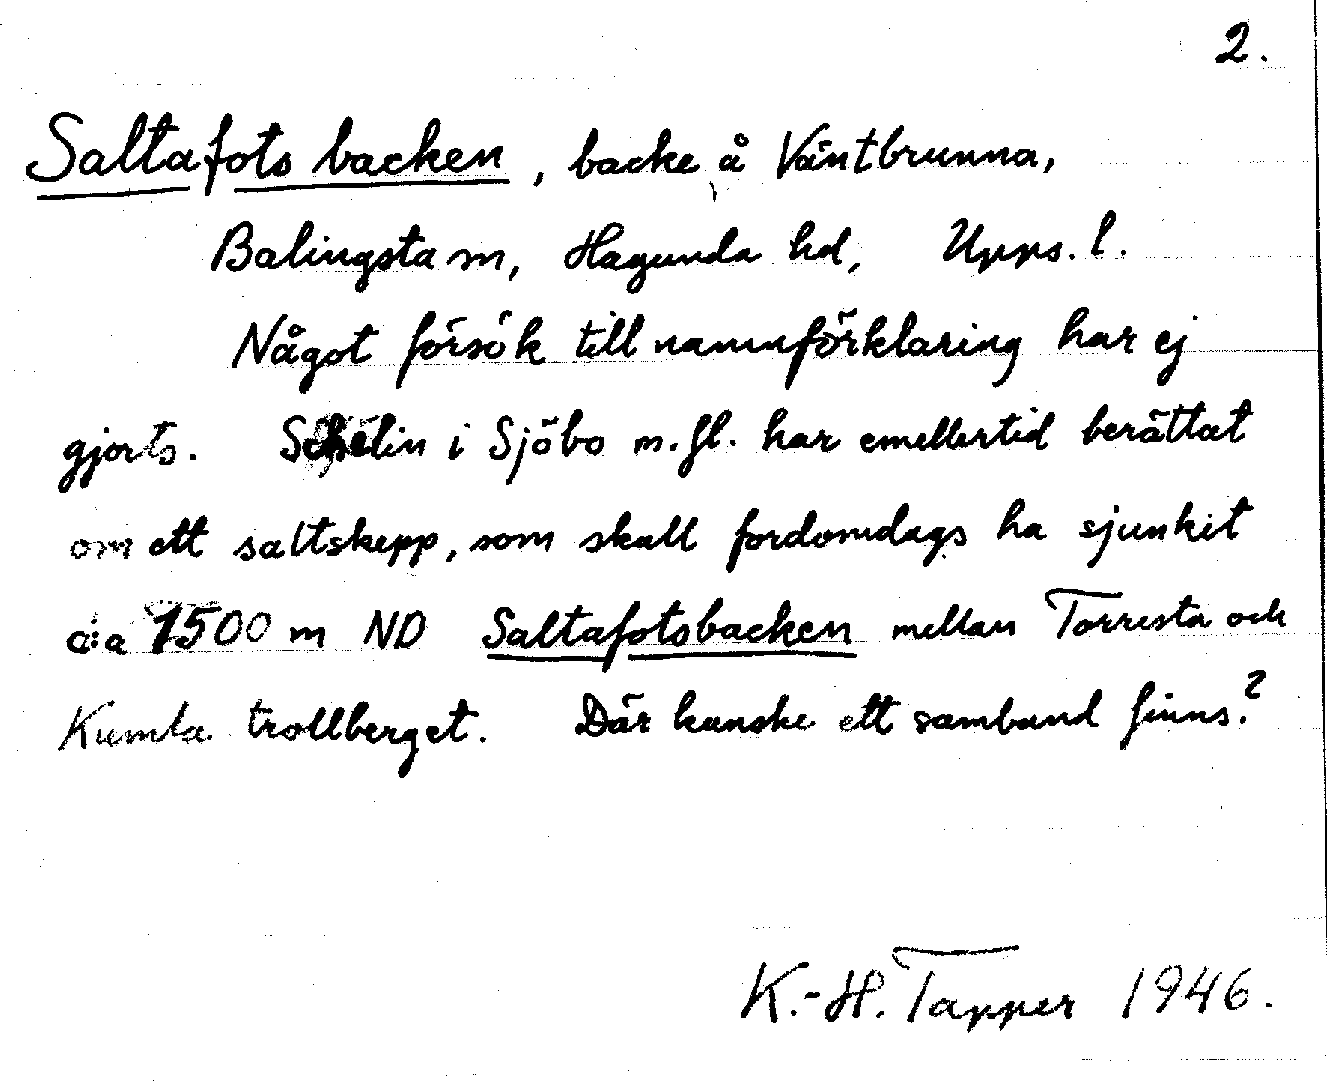 2.
Saltafots backen, backe å Väntbrunna,
Balingsta sn, Hagunda hd, Upps. l.
Något försök till namnförklaring har ej
gjorts. Schelin i Sjöbo m.fl. har emellertid berättat
om ett saltskepp, som skall fordomdags ha sjunkit
c:a 1500 m NO Saltafotsbacken mellan Torresta och
Kumla trollberget. Där kanske ett samband finns.?
K.-H. Tapper 1946.